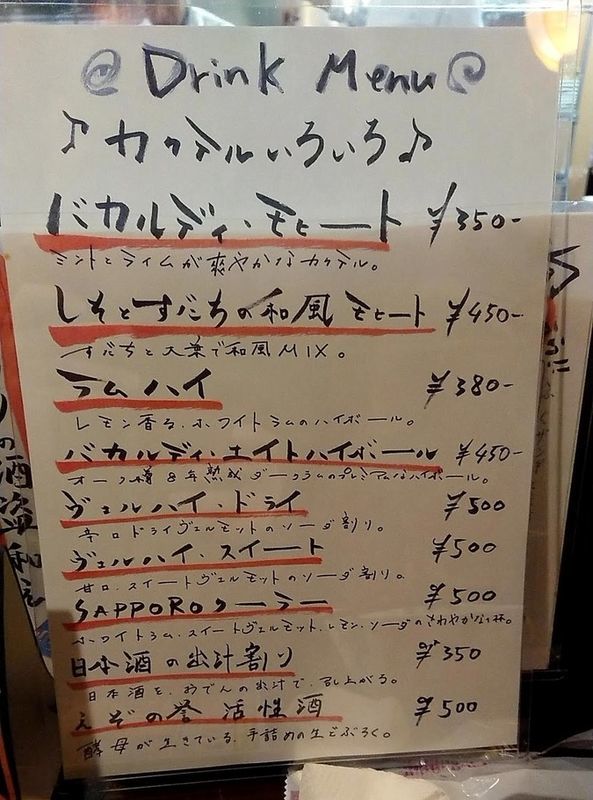 @ Drink Menu @
♪ カクテルいろいろ ♪
バカルディ・モヒート ¥350-
ミントとライムが爽やかなカクテル。
しそとすだちの和風モヒート ¥450-
すだちと大葉で和風MIX。
ラムハイ ¥380-
レモン香る、ホワイトラムのハイボール。
バカルディ・エイトハイボール ¥450-
オーク樽8年熟成ダークラムのプレミアムなハイボール。
ヴェルハイ・ドライ ¥500
辛口ドライヴェルモットのソーダ割り。
ヴェルハイ・スイート ¥500
甘口、スイートヴェルモットのソーダ割り。
SAPPOROクーラー ¥500
ホワイトラム、スイートヴェルモット、レモン、ソーダのさわやかな1杯。
日本酒の出汁割り ¥350
日本酒を、おでんの出汁で、召し上がる。
えぞの誉 活性酒 ¥500
酵母が生きている、手詰めの生どぶろく。
の酒盗和え